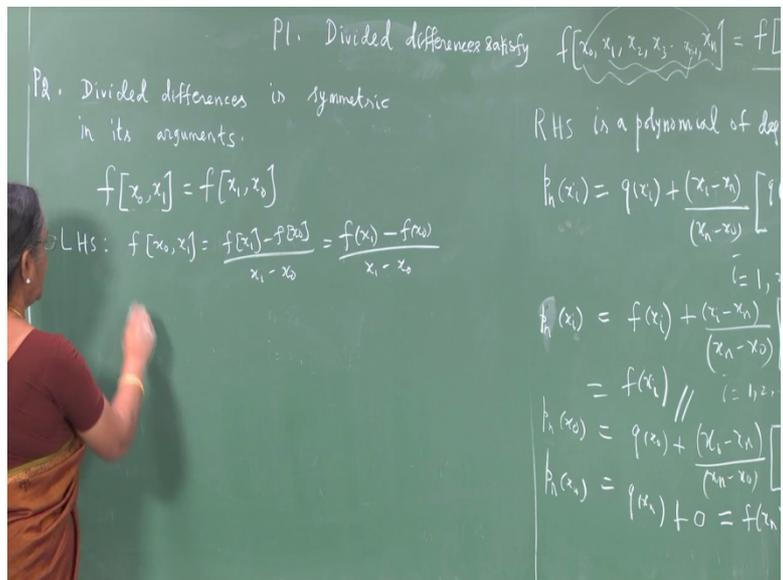 P1. Divided differences satisfy f[x₀, x₁, x₂, x₃ ... xₙ₋₁, xₙ] = f[
P2. Divided differences is symmetric
in its arguments.
f[x₀,x₁] = f[x₁,x₀]
LHS: f[x₀,x₁] = (f[x₁]-f[x₀])/(x₁-x₀) = (f(x₁)-f(x₀))/(x₁-x₀)
RHS is a polynomial of deg
pₙ(xᵢ) = q(xᵢ) + (xᵢ-xₙ)/(xₙ-x₀) [
i=1,
pₙ(xᵢ) = f(xᵢ) + (xᵢ-xₙ)/(xₙ-x₀)
= f(xᵢ) // i=1,2,
pₙ(x₀) = q(x₀) + (x₀-xₙ)/(xₙ-x₀) [
pₙ(xₙ) = q(xₙ) + 0 = f(xₙ